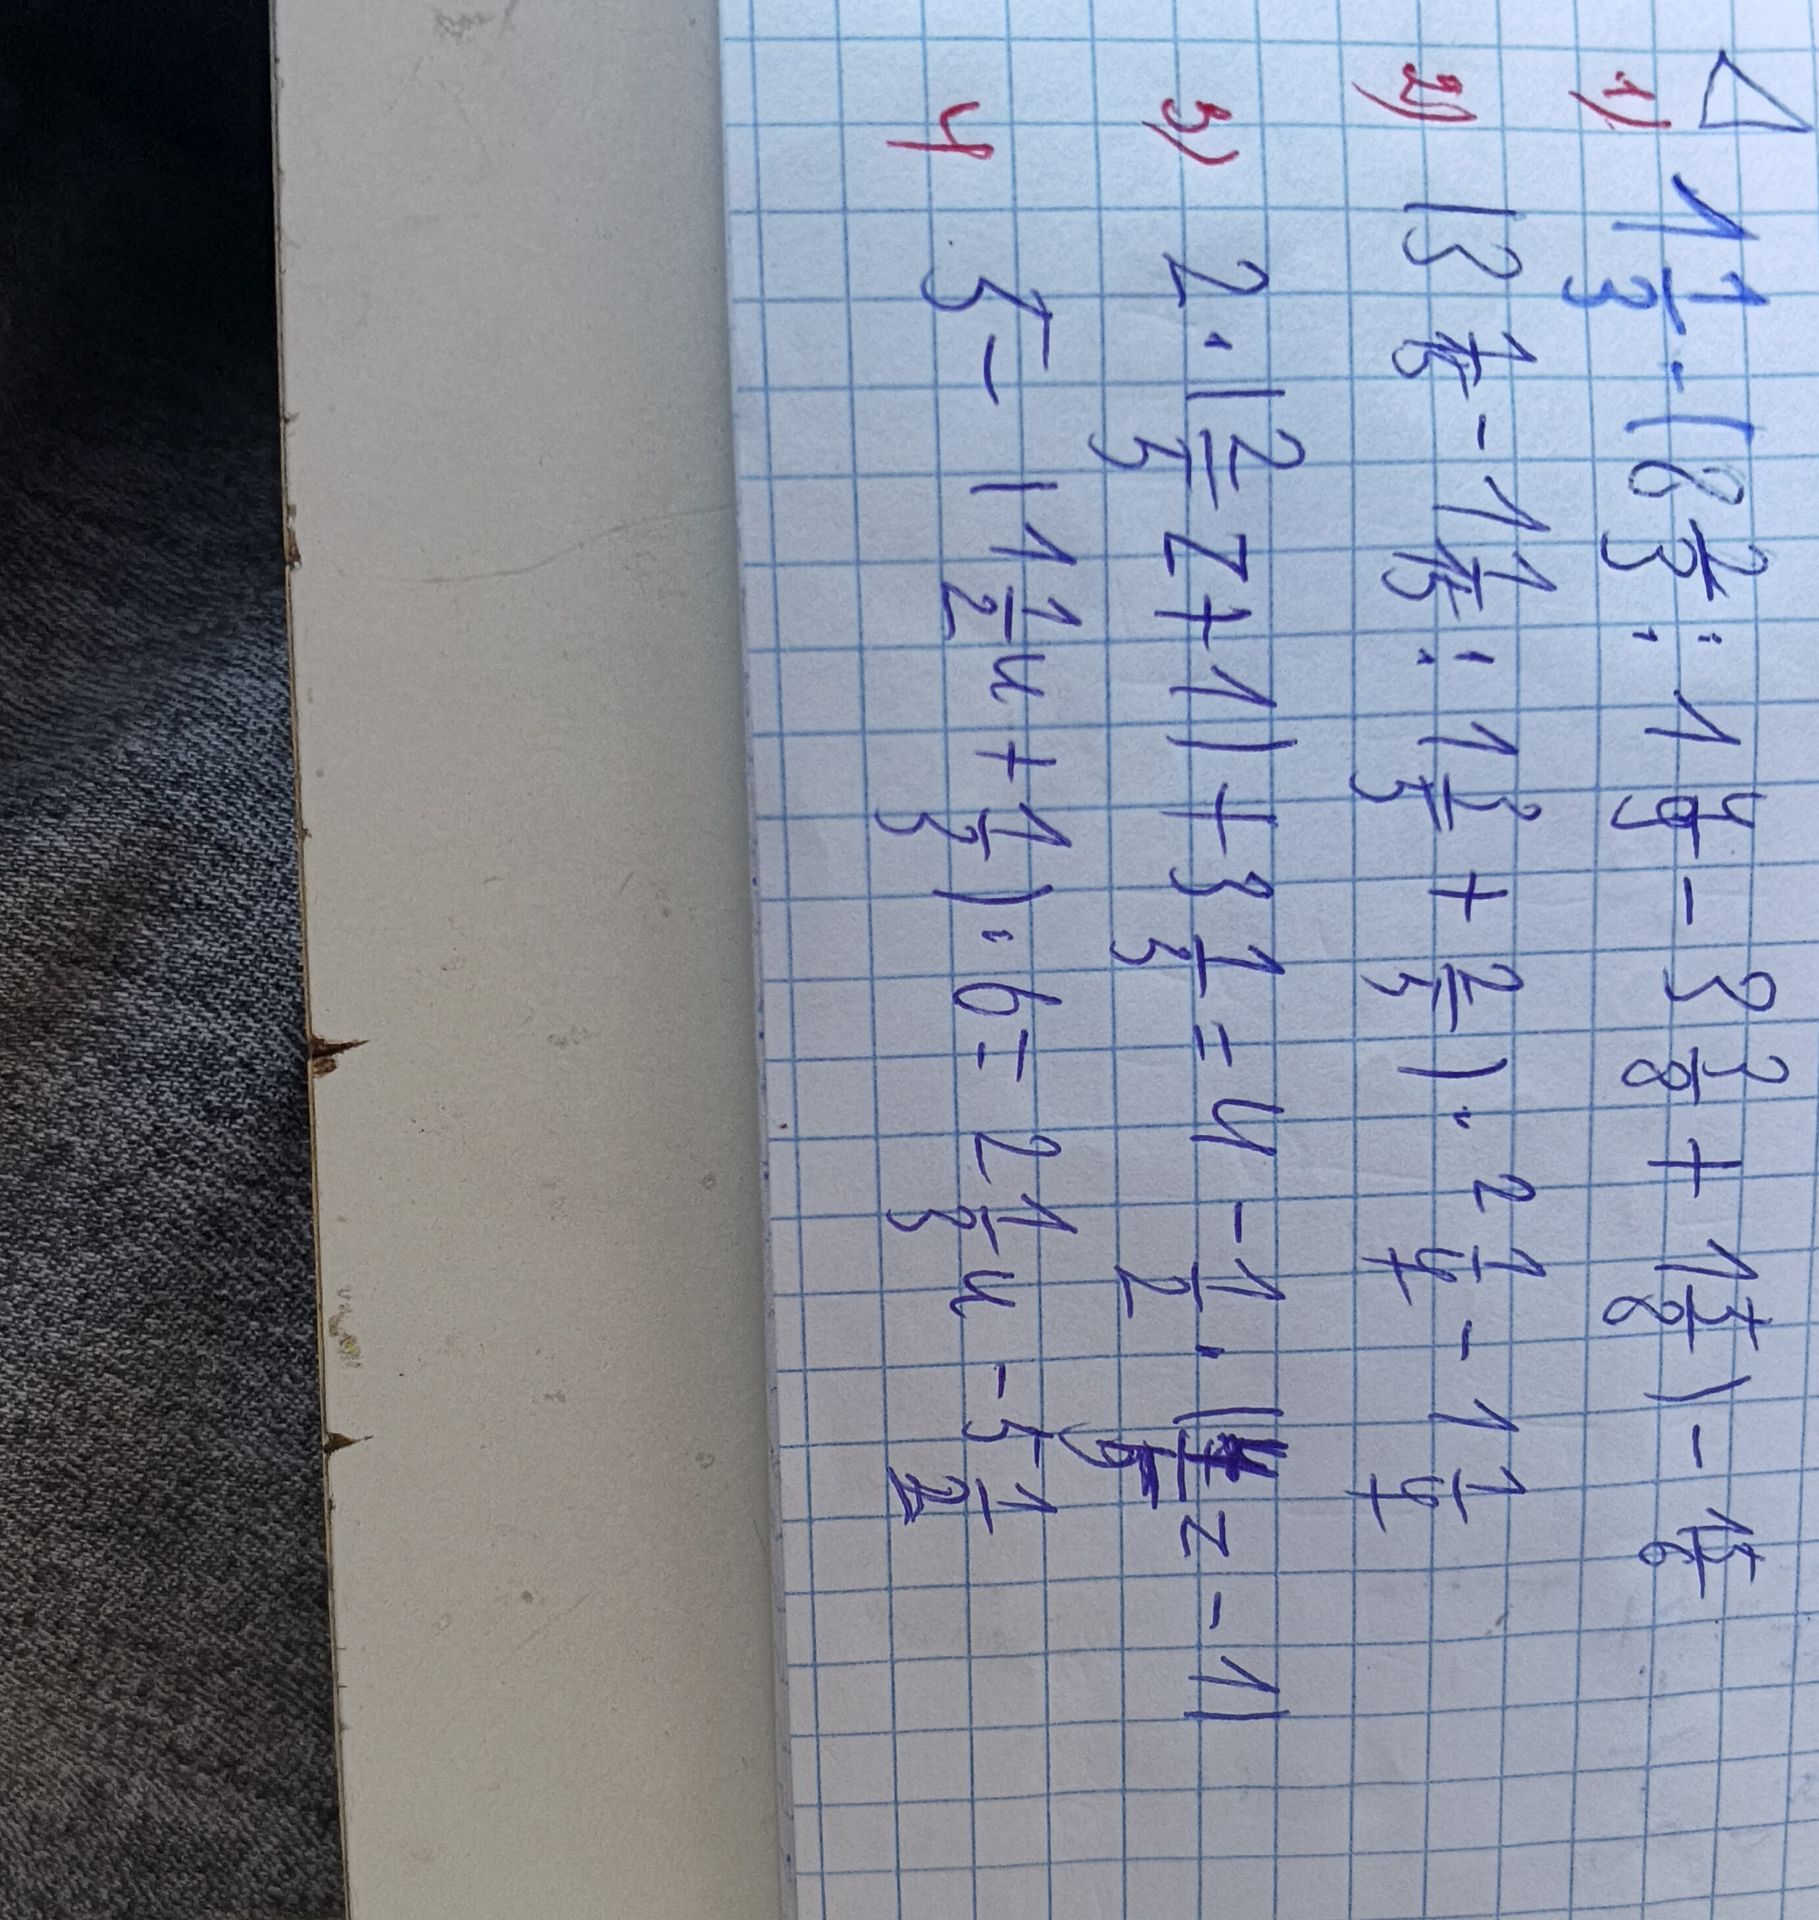 1) 1 1/3 · (6 2/3 : 1 4/9 - 3 3/8 + 1 5/8) - 15/6
2) (3 1/15 - 1 1/15 : 1 3/5 + 2/5) · 2 1/4 - 1 1/4
3) 2 · (2/5 z + 1) + 3 1/5 = 4 - 1/2 · ( /5 z - 1)
4 5 - (1 1/2 u + 1/3) · 6 = 2 1/3 u - 5 1/2